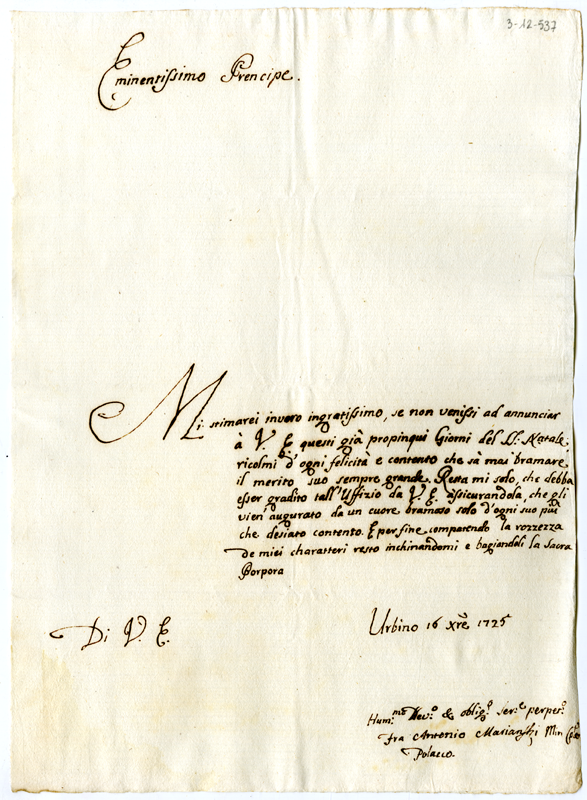 3-12-537
Eminentissimo Prencipe.
Mi stimarei invero ingratissimo, se non venissi ad annunciar
à V. E. questi già propinqui Giorni del SS. Natale
ricolmi d'ogni felicità e contento che sà mai bramare
il merito suo sempre grande. Resta mi solo, che debba
esser gradito tall'Uffizio da V. E. assicurandola, che gli
vien augurato da un cuore bramoso solo d'ogni suo più
che desiato contento. E per fine compatendo la rozzezza
de miei charatteri resto inchinandomi e bagiandoli la Sacra
Porpora
Urbino 16 Xre 1725
Di V. E.
Hum.mo Dev.o & oblig.o ser.e perpet.o
fra Antonio Marianski Min
Polacco.